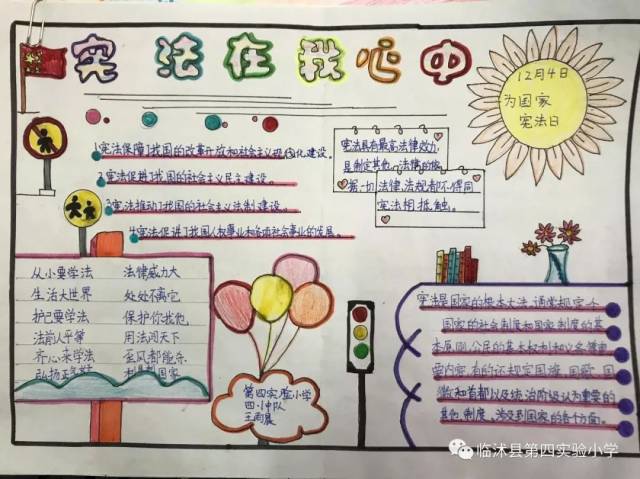 宪法在我心中
12月4日
为国家
宪法日
1.宪法保障了我国的改革开放和社会主义现代化建设。
2.宪法促进了我国的社会主义民主建设。
3.宪法推动了我国的社会主义法制建设。
4.宪法促进了我国人权事业和各项社会事业的发展。
宪法具有最高法律效力,
是制定其他法律的依
据,一切法律、法规都不得同
宪法相抵触。
从小要学法 法律威力大
生活大世界 处处离不它
护己要学法 保护你我他
法前人平等 用法闯天下
齐心来学法
弘扬
第四实验小学
四·1中队
王雨晨
宪法是国家的根本大法,通常规定个
国家的社会制度和国家制度的基
本原则,公民的基本权利和义务
要内容,有的还规定国旗、国歌、国
徽和首都以及统治阶级认为重要的
其他制度,涉及到国家的各个方面。
临沭县第四实验小学